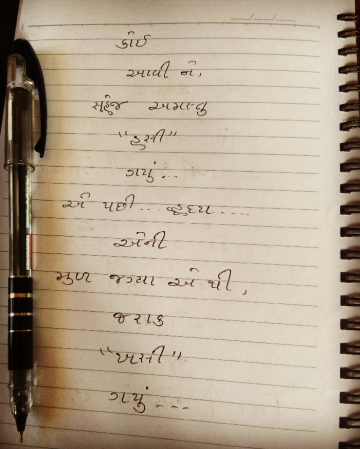 કોઈ
આવી ને,
સહેજ અમસ્તુ
"હસી"
ગયું...
એ પછી... હ્રદય....
એની
મુળ જગ્યા એ થી,
જરાક
"ખસી"
ગયું...